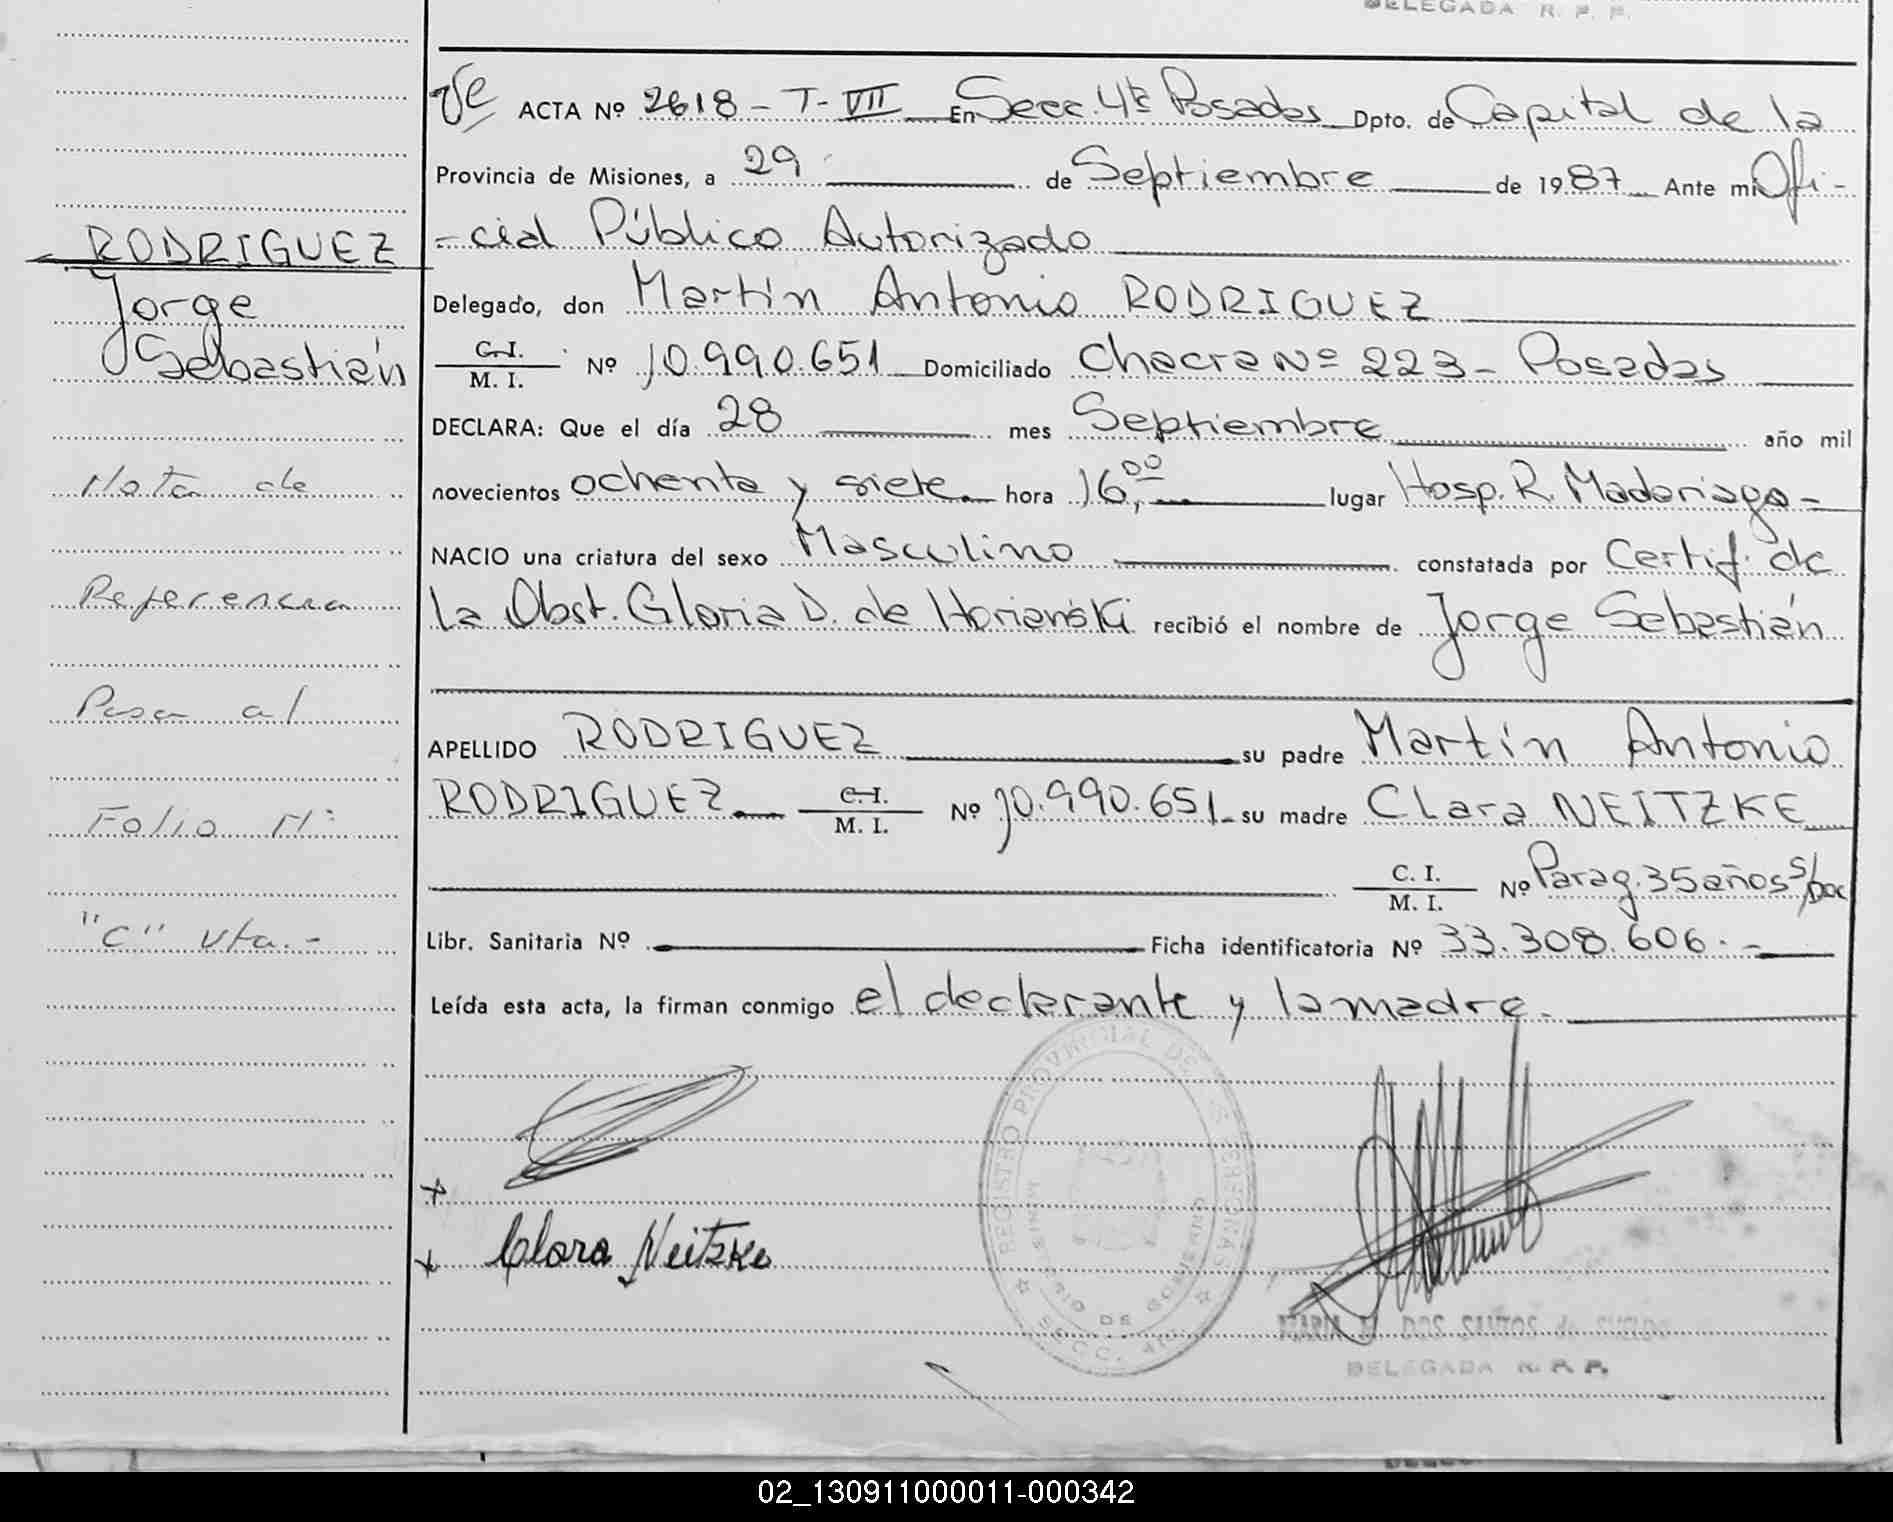 DELEGADA R. P. P.
ACTA Nº 2618 - T - VII En Secc. 4ta Posadas Dpto. de Capital de la
Provincia de Misiones, a 29 de Septiembre de 1987 Ante mi Ofi-
RODRIGUEZ
-cial Público Autorizado
Jorge
Delegado, don Martín Antonio RODRIGUEZ
Sebastián
C. I.
M. I. Nº 10.990.651 Domiciliado Chacra Nº 223 - Posadas
DECLARA: Que el día 28 mes Septiembre año mil
Nota de
novecientos ochenta y siete hora 16,00 lugar Hosp. R. Madariaga -
NACIO una criatura del sexo Masculino constatada por Certif. de
Referencia
la Obst. Gloria D. de Horianski recibió el nombre de Jorge Sebastián
Pasa al
APELLIDO RODRIGUEZ su padre Martín Antonio
Folio Nº
RODRIGUEZ C. I.
M. I. Nº 10.990.651 su madre Clara NEITZKE
C. I.
M. I. Nº Parag. 35 años s/doc
"C" vta.-
Libr. Sanitaria Nº Ficha identificatoria Nº 33.308.606.-
Leída esta acta, la firman conmigo el declarante y la madre.
REGISTRO PROVINCIAL DE LAS PERSONAS
MINISTERIO DE GOBIERNO
SECC. 4ta.
x
x Clara Neitzke
MARIA DOS SANTOS de
DELEGADA R. P. P.
02_130911000011-000342